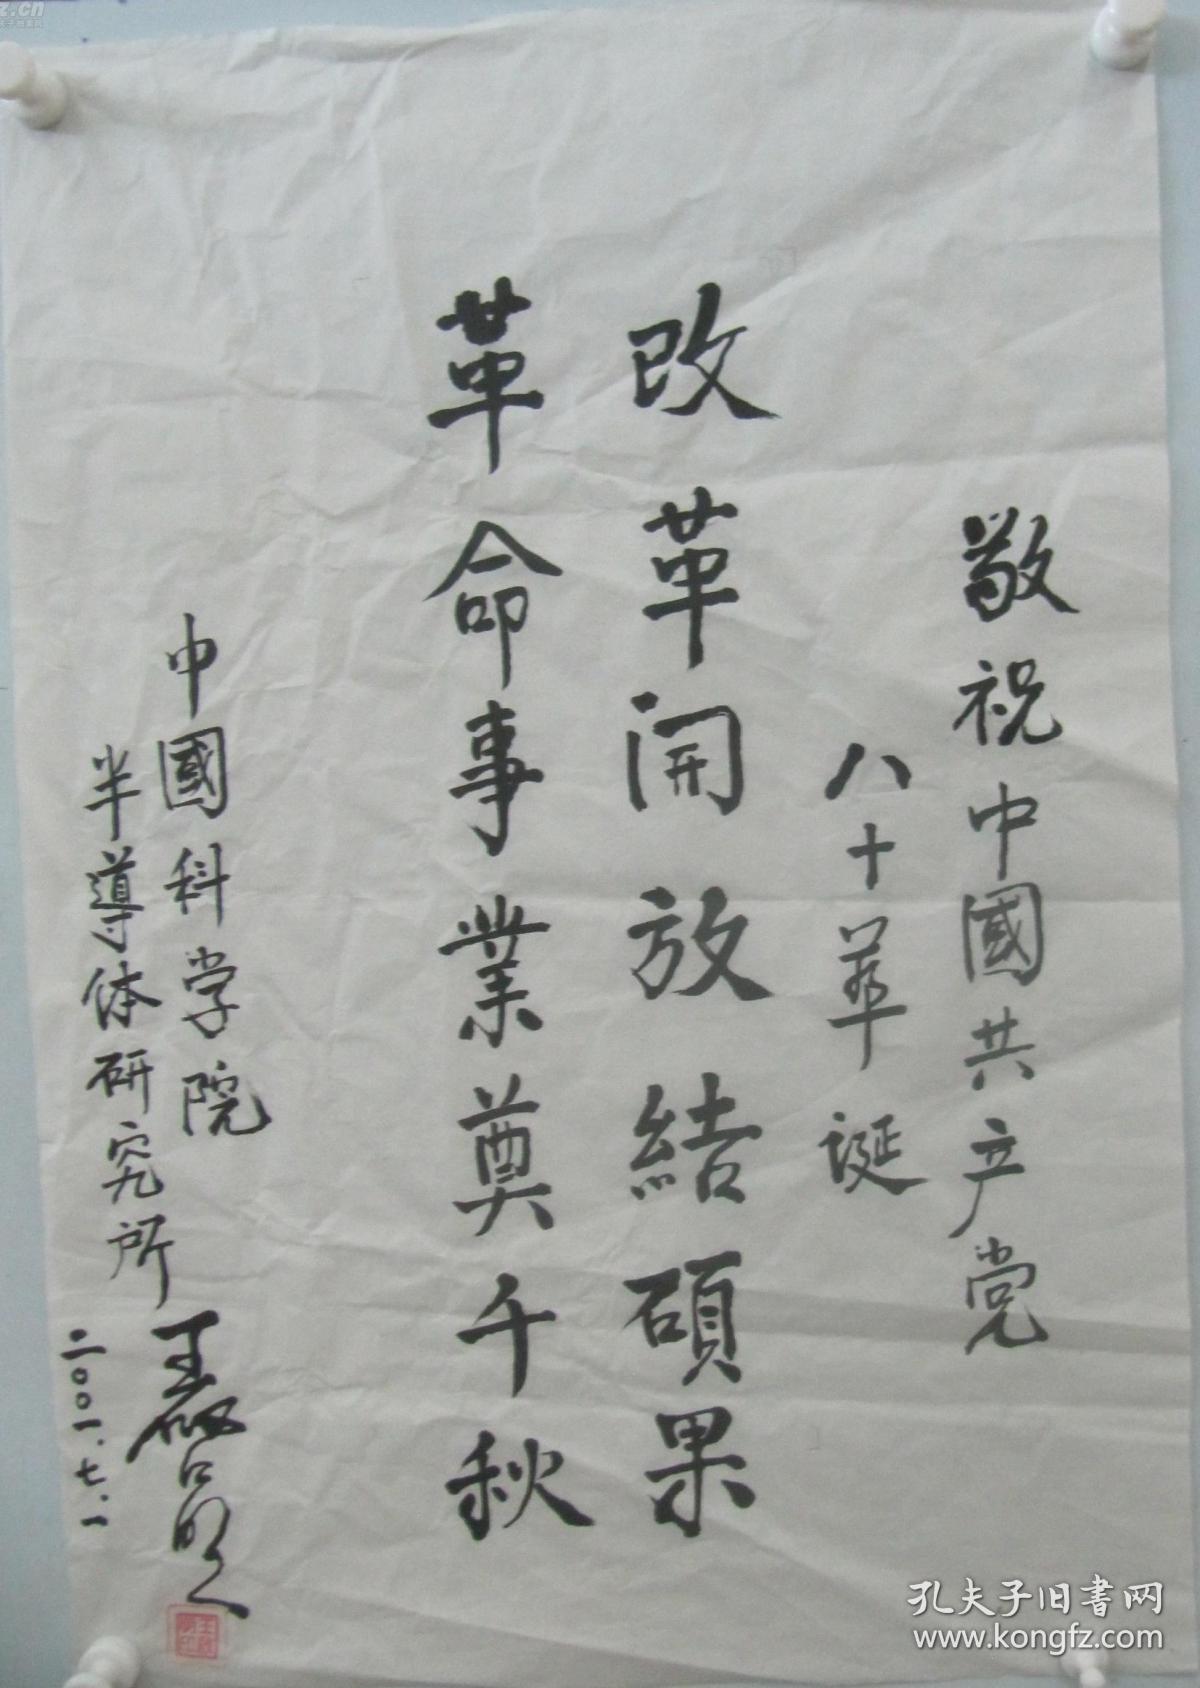 敬祝中國共产党
八十華诞
改革開放結碩果
革命事業奠千秋
中國科学院
半導体研究所
王啟明
二〇〇一.七.一
孔夫子旧书网
www.kongfz.com
z.cn